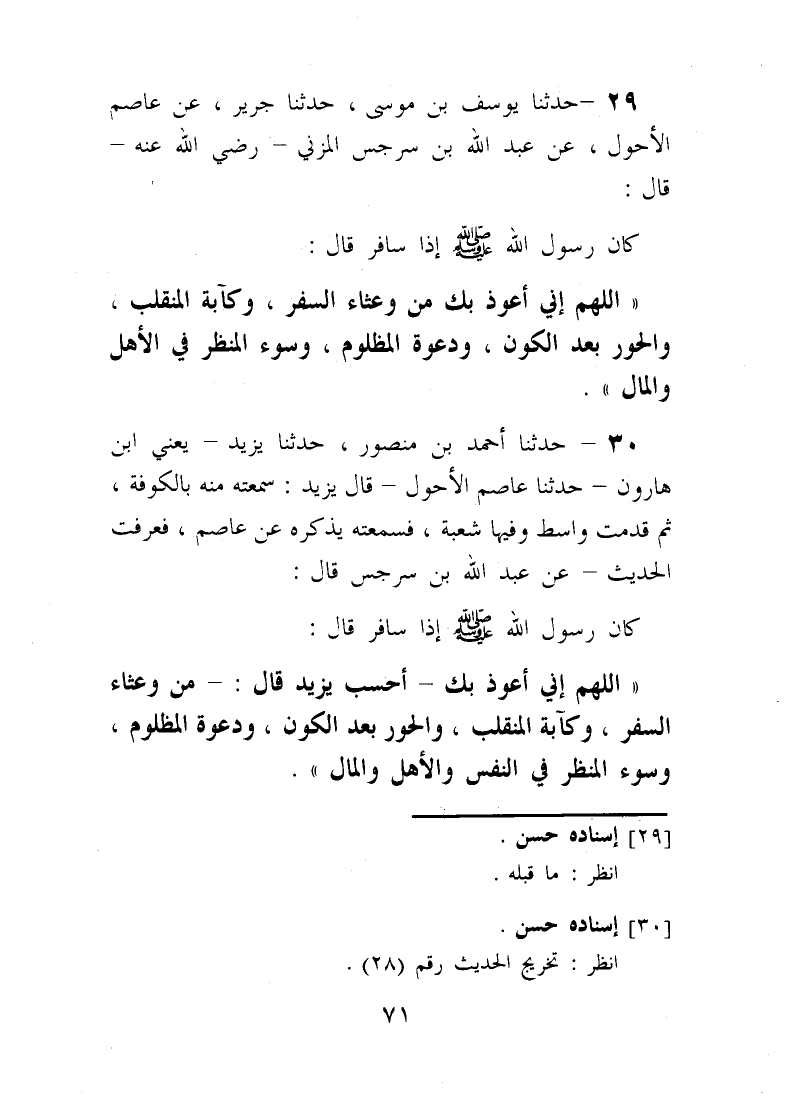 ٢٩ –حدثنا يوسف بن موسى ، حدثنا جرير ، عن عاصم
الأحول ، عن عبد الله بن سرجس المزني – رضي الله عنه –
قال :
كان رسول الله ﷺ إذا سافر قال :
« اللهم إني أعوذ بك من وعثاء السفر ، وكآبة المنقلب ،
والحور بعد الكون ، ودعوة المظلوم ، وسوء المنظر في الأهل
والمال » .
٣٠ – حدثنا أحمد بن منصور ، حدثنا يزيد – يعني ابن
هارون – حدثنا عاصم الأحول – قال يزيد : سمعته منه بالكوفة ،
ثم قدمت واسط وفيها شعبة ، فسمعته يذكره عن عاصم ، فعرفت
الحديث – عن عبد الله بن سرجس قال :
كان رسول الله ﷺ إذا سافر قال :
« اللهم إني أعوذ بك – أحسب يزيد قال : – من وعثاء
السفر ، وكآبة المنقلب ، والحور بعد الكون ، ودعوة المظلوم ،
وسوء المنظر في النفس والأهل والمال » .
[٢٩] إسناده حسن .
انظر : ما قبله .
[٣٠] إسناده حسن .
انظر : تخريج الحديث رقم (٢٨) .
٧١